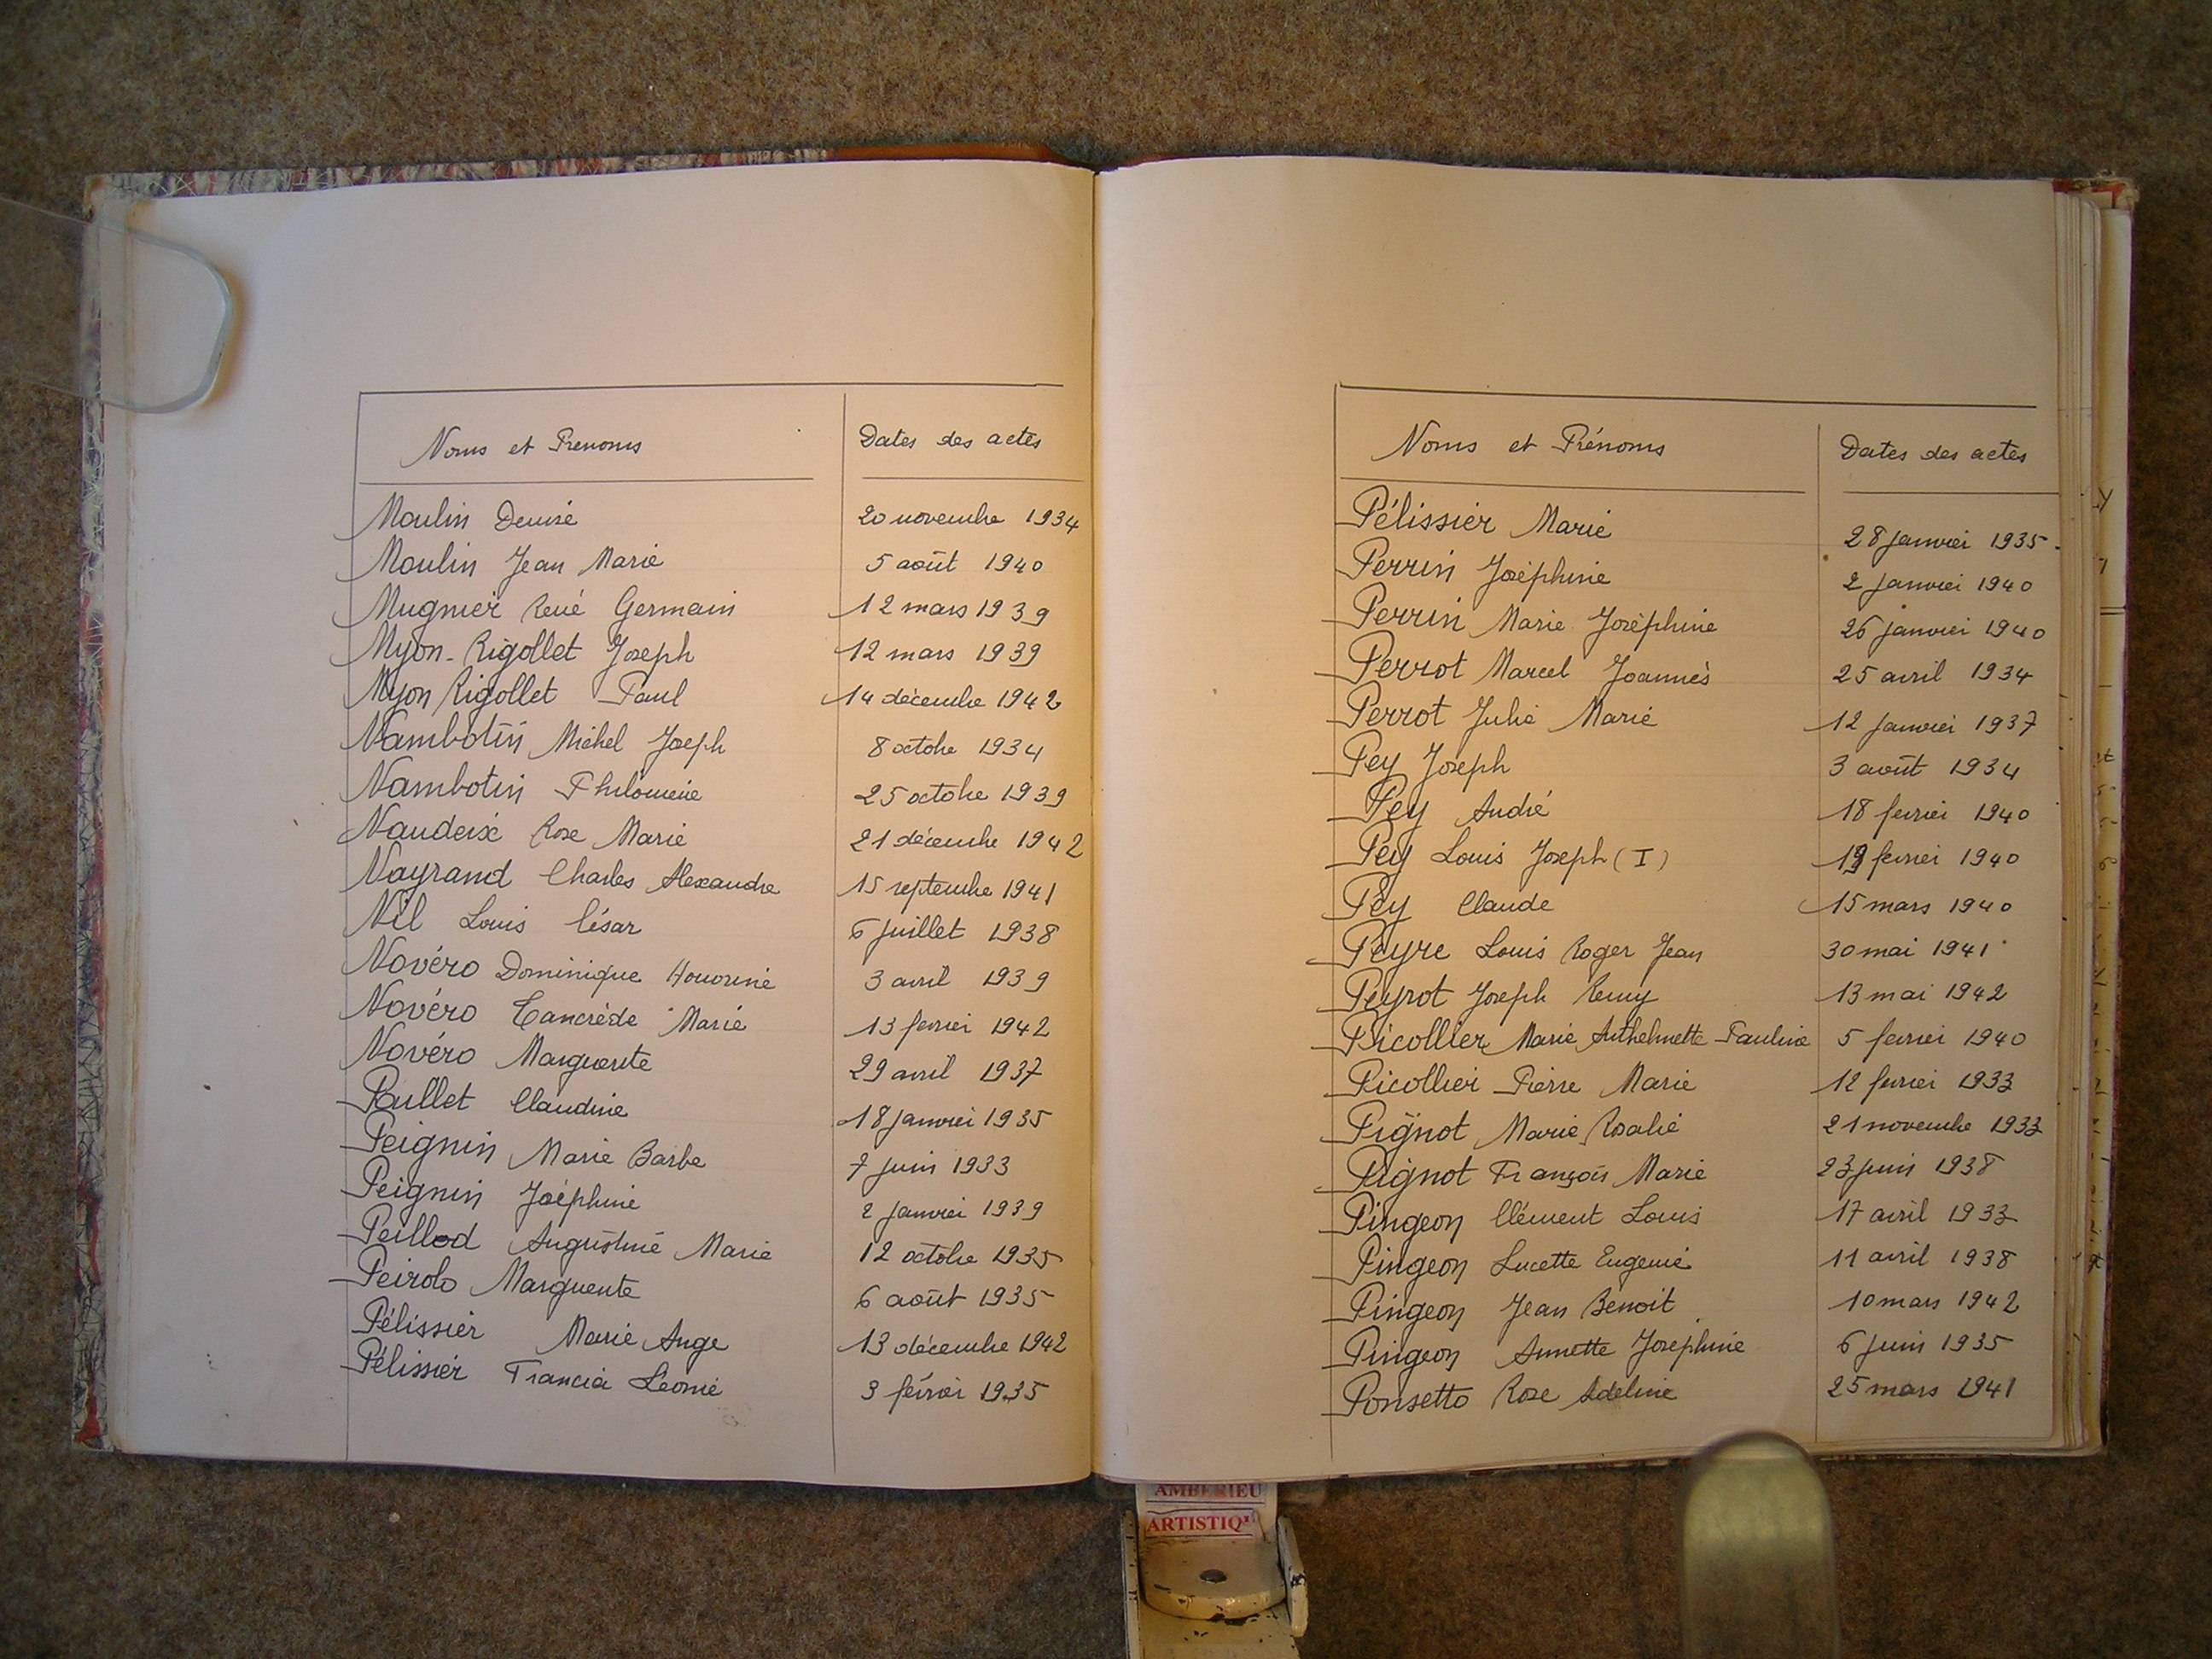 Noms et Prenoms Dates des actes
Moulin Denise 20 novembre 1934
Moulin Jean Marie 5 août 1940
Mugnier René Germain 12 mars 1939
Myon-Rigollet Joseph 12 mars 1939
Myon Rigollet Paul 14 décembre 1942
Nambotin Michel Joseph 8 octobre 1934
Nambotin Philomène 25 octobre 1939
Naudeix Rose Marie 21 décembre 1942
Nayrand Charles Alexandre 15 septembre 1941
Nil Louis César 6 juillet 1938
Novéro Dominique Honorine 3 avril 1939
Novéro Tancrède Marie 13 fevrier 1942
Novéro Marguerite 29 avril 1937
Paillet Claudine 18 janvier 1935
Peignin Marie Barbe 7 juin 1933
Peignin Joséphine 2 janvier 1939
Peillod Augustine Marie 12 octobre 1935
Peirolo Marguerite 6 août 1935
Pélissier Marie Ange 13 décembre 1942
Pélissier Francia Léonie 3 février 1935
Noms et Prénoms Dates des actes
Pélissier Marie 28 janvier 1935
Perrin Joséphine 2 janvier 1940
Perrin Marie Joséphine 26 janvier 1940
Perrot Marcel Joannès 25 avril 1934
Perrot Julie Marie 12 janvier 1937
Pey Joseph 3 août 1934
Pey André 18 fevrier 1940
Pey Louis Joseph (I) 19 fevrier 1940
Pey Claude 15 mars 1940
Peyre Louis Roger Jean 30 mai 1941
Peyrot Joseph Remy 13 mai 1942
Picollier Marie Anthelmette Pauline 5 fevrier 1940
Picollier Pierre Marie 12 fevrier 1933
Pignot Marie Rosalie 21 novembre 1933
Pignot François Marie 23 juin 1938
Pingeon Clément Louis 17 avril 1933
Pingeon Lucette Eugenie 11 avril 1938
Pingeon Jean Benoit 10 mars 1942
Pingeon Annette Josephine 6 juin 1935
Ponsetto Rose Adeline 25 mars 1941
AMBERIEU
ARTISTIQ